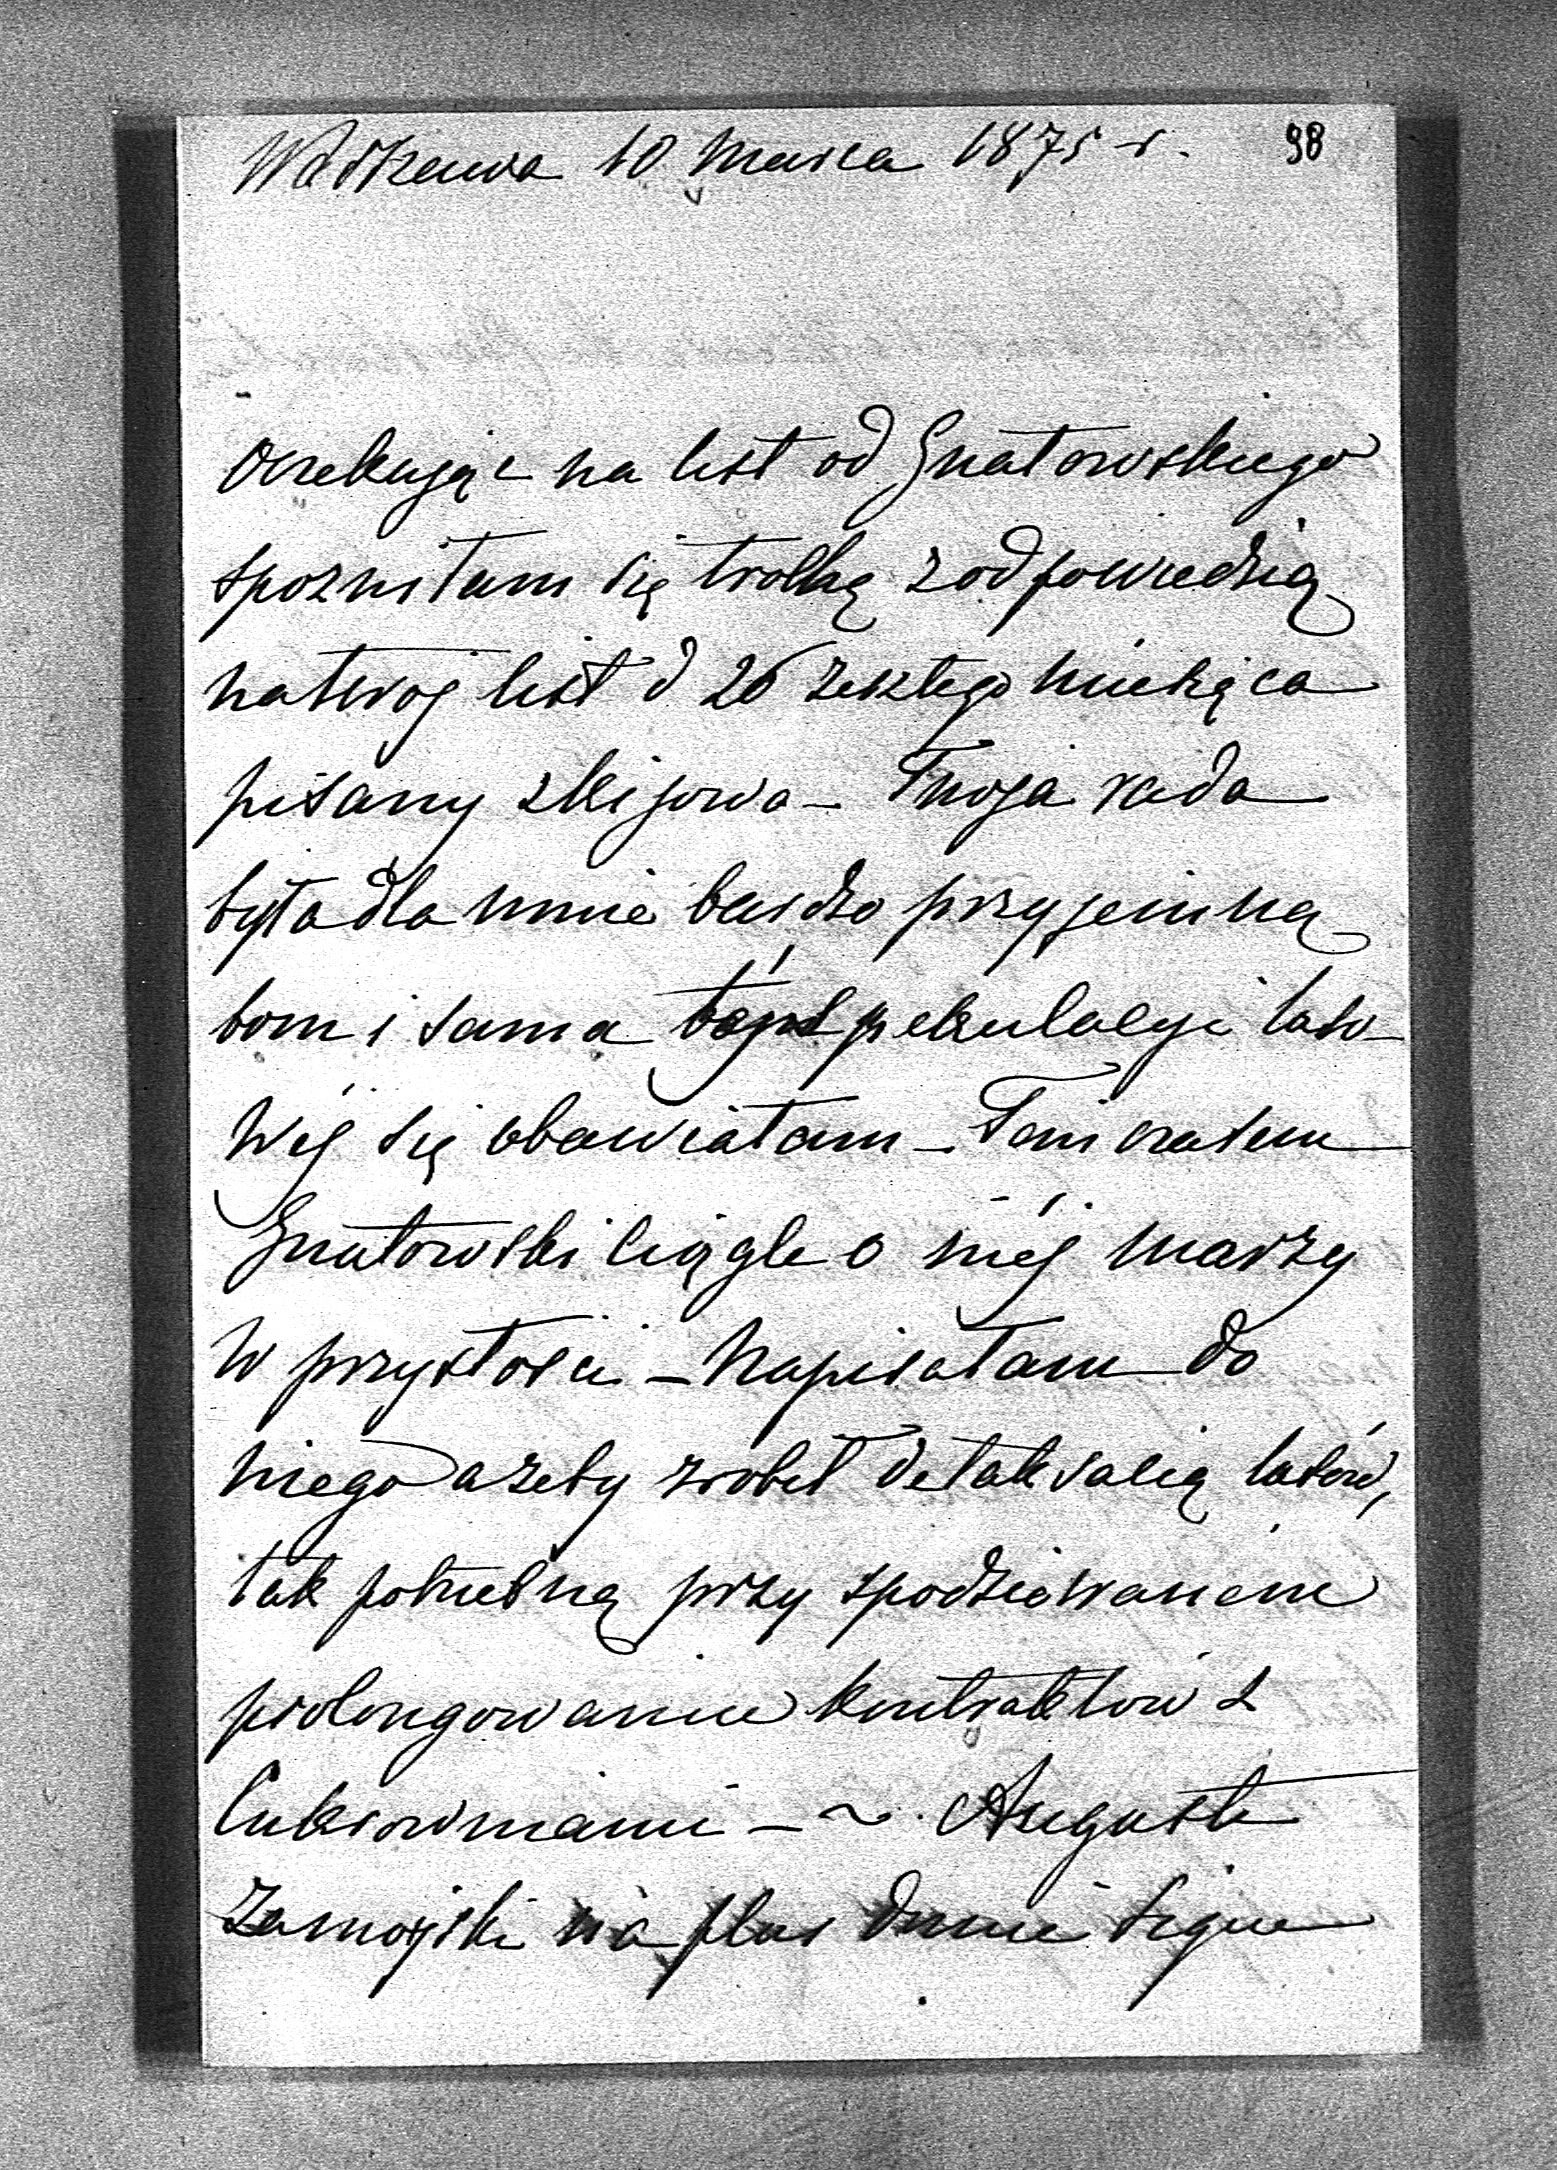 Warszawa 10 Marca 1875 r. 98
Oczekując na list od Gnatowskiego
spozniłam się trochę z odpowiedzią
na twoj list d 26 zeszłego miesiąca
pisany z kijowa – Twoja rada
była dla mnie bardzo przyjemną
bom i sama tej spekulacyi laso-
wéj się obawiałam – Tem czasem
Gnatowski ciągle o niéj marzy
w przyszłosci – Napisałam do
niego azeby zrobił detaksacią lasów,
tak potrzebną przy spodziewaném
prolongowaniu kontraktów z
Cukrowniami – ~. August
Zamojski na plac